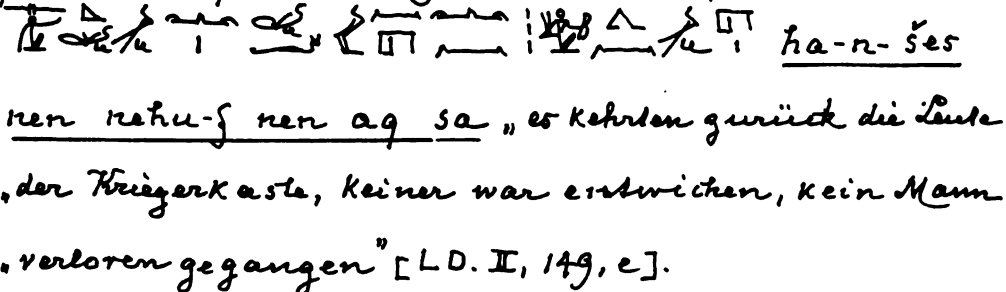 ha-n-šes
nen nehu-f nen aq sa „es kehrten zurück die Leute
„der Kriegerkaste, keiner war entwichen, kein Mann
„verloren gegangen” [LD. II, 149, e].